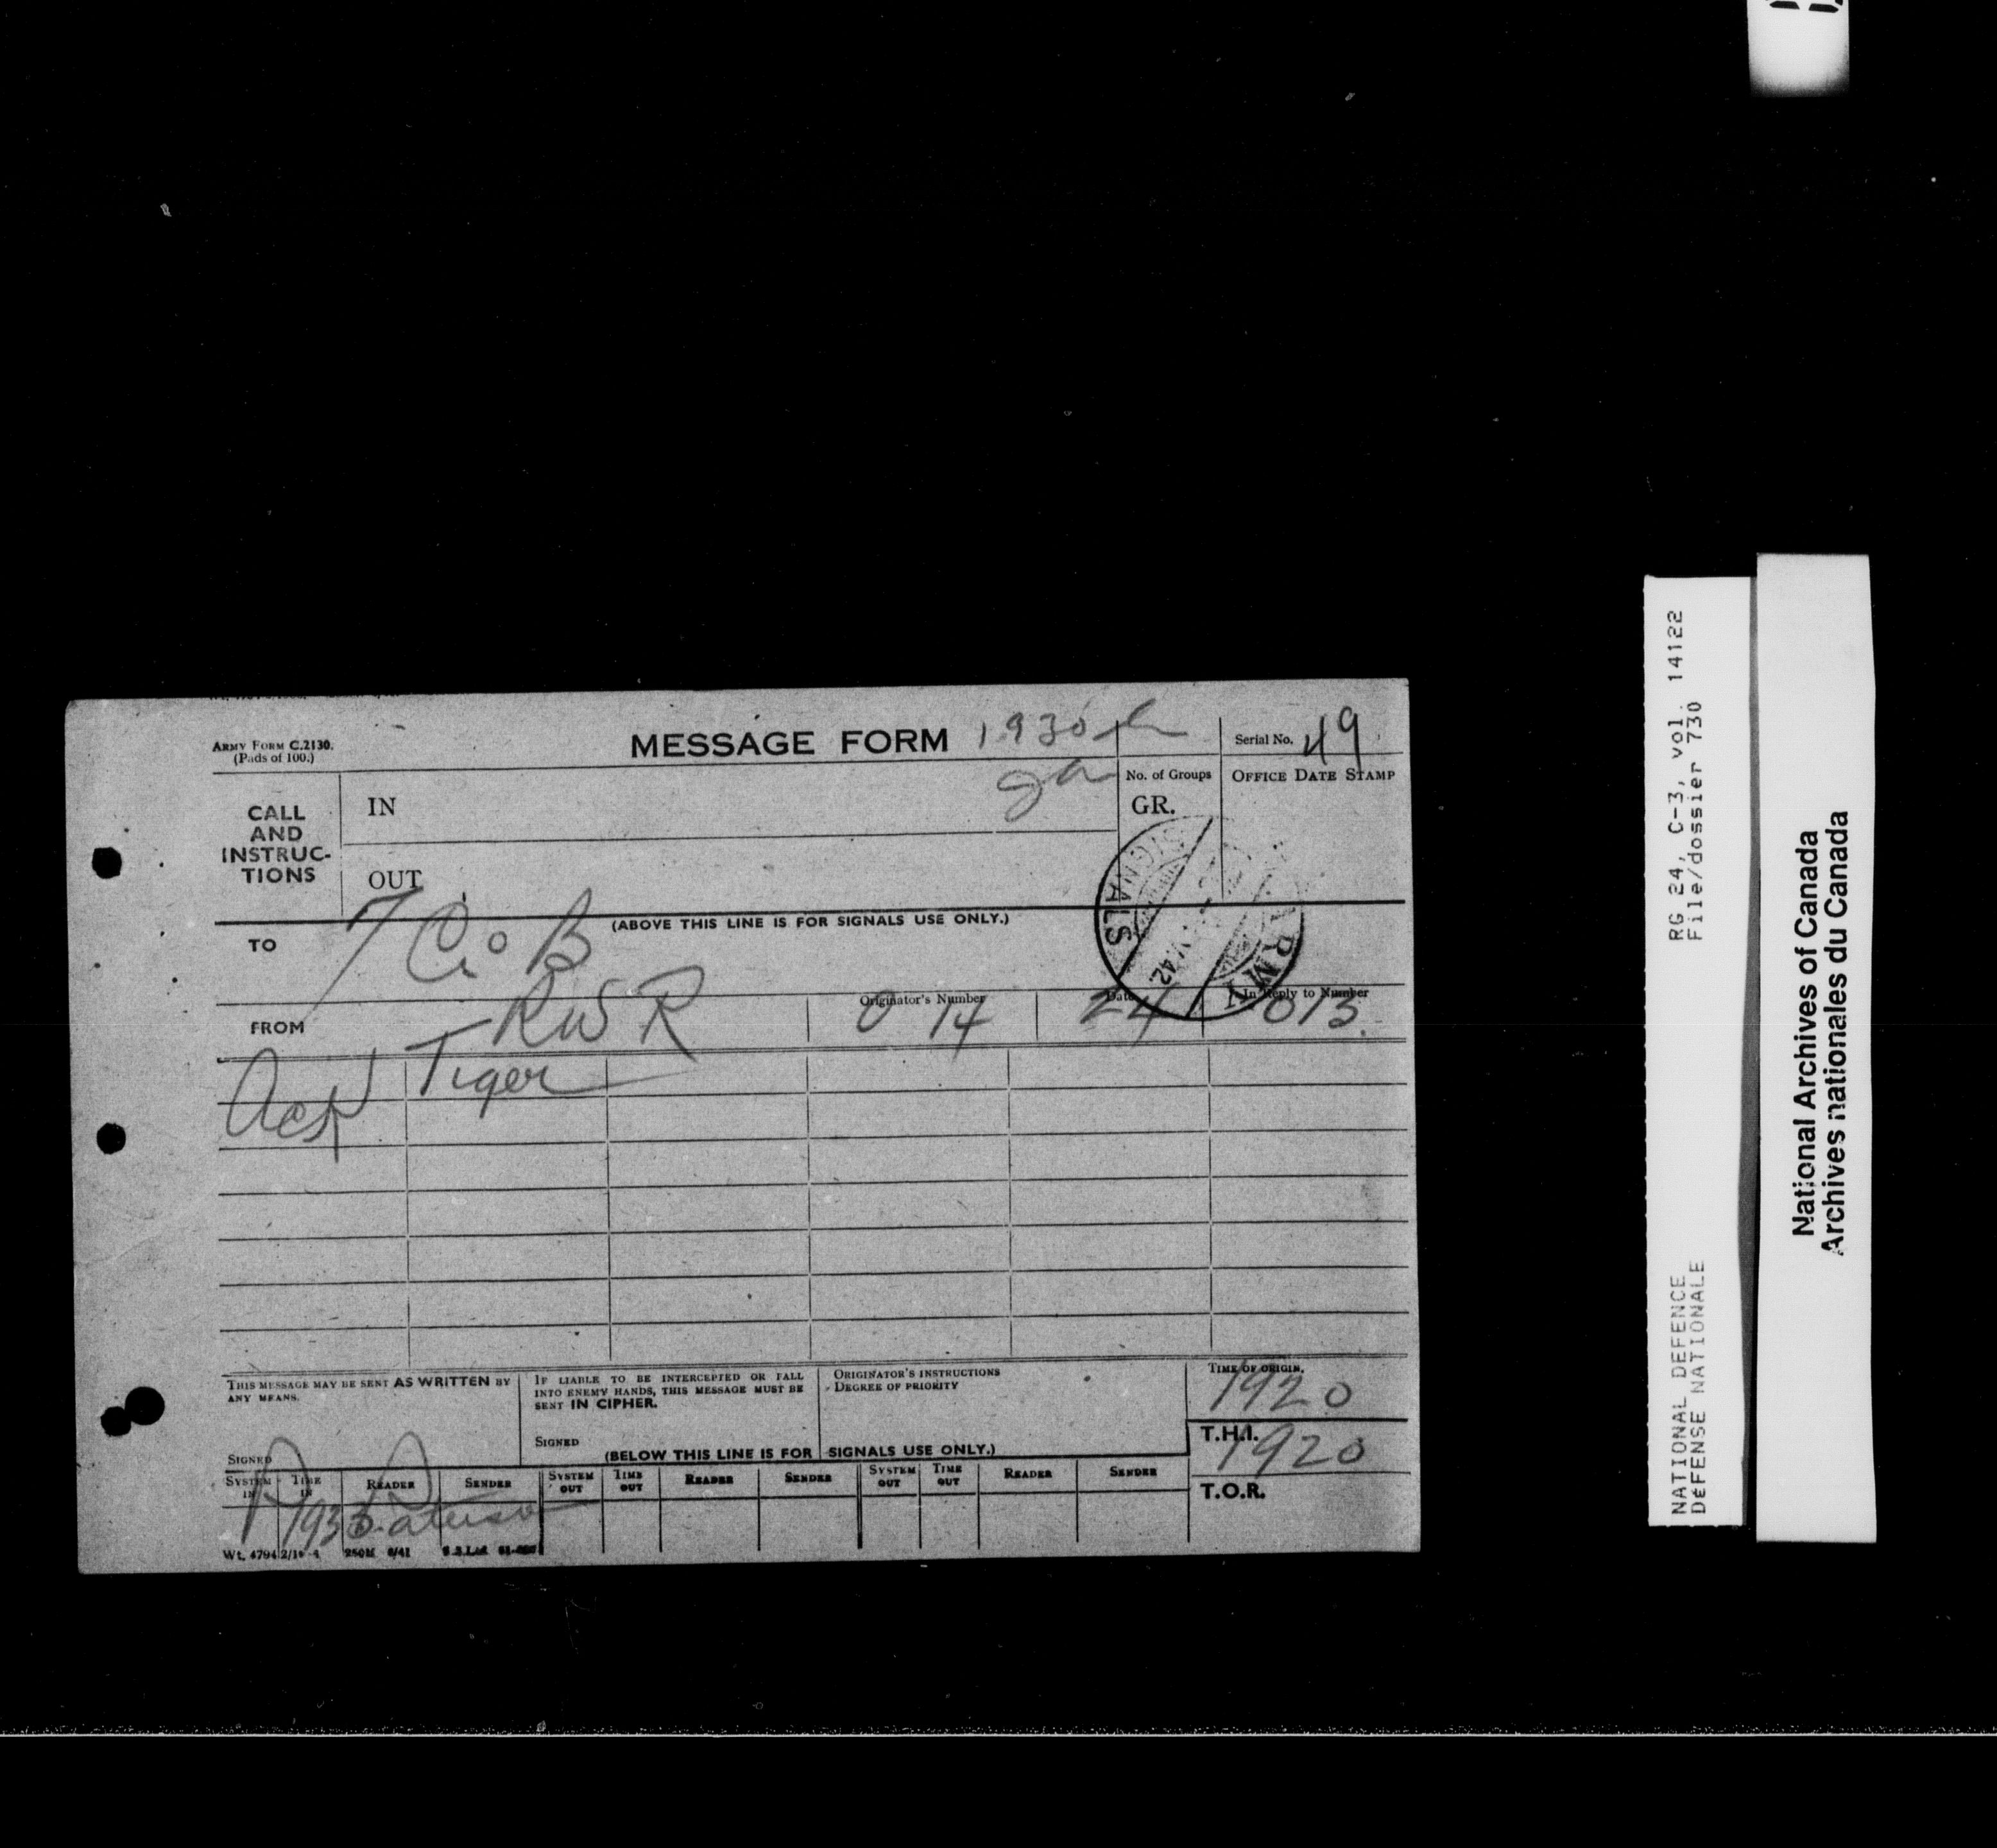 ARMY FORM C.2130.
(Pads of 100.)
MESSAGE FORM
1930
Serial No. 49
CALL
AND
INSTRUC-
TIONS
IN
No. of Groups
GR.
OFFICE DATE STAMP
OUT
SIGNALS
ARMY
42
(ABOVE THIS LINE IS FOR SIGNALS USE ONLY.)
TO
7 C.i.B
FROM
RWR
Originator's Number
0 14
Date
24
In Reply to Number
013
Tiger
THIS MESSAGE MAY BE SENT AS WRITTEN BY
ANY MEANS.
SIGNED
IF LIABLE TO BE INTERCEPTED OR FALL
INTO ENEMY HANDS, THIS MESSAGE MUST BE
SENT IN CIPHER.
SIGNED
ORIGINATOR'S INSTRUCTIONS
DEGREE OF PRIORITY
TIME OF ORIGIN.
1920
T.H.I.
1920
T.O.R.
(BELOW THIS LINE IS FOR SIGNALS USE ONLY.)
SYSTEM IN TIME IN READER SENDER SYSTEM OUT TIME OUT READER SENDER SYSTEM OUT TIME OUT READER SENDER
250M 6/41
RG 24, C-3, vol. 14122
File/dossier 730
NATIONAL DEFENCE
DÉFENSE NATIONALE
National Archives of Canada
Archives nationales du Canada